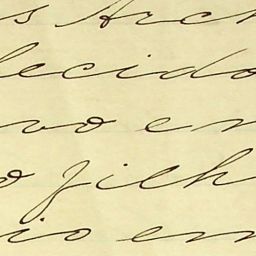 s Arch
lecido
vo en
o filh
io em